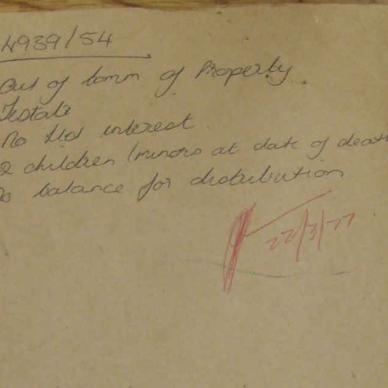 4939/54
Out of Comm of Property
Testate
No Ltd interest
2 children (minors at date of death
No balance for distribution
22/3/77